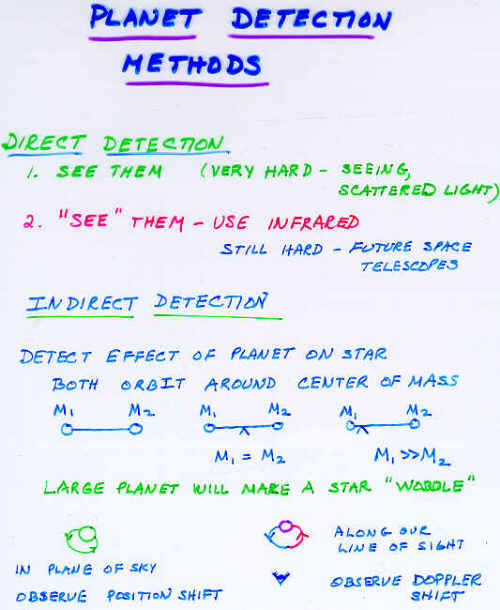 PLANET DETECTION
METHODS
DIRECT DETECTION
1. SEE THEM (VERY HARD - SEEING,
SCATTERED LIGHT)
2. "SEE" THEM - USE INFRARED
STILL HARD - FUTURE SPACE
TELESCOPES
INDIRECT DETECTION
DETECT EFFECT OF PLANET ON STAR
BOTH ORBIT AROUND CENTER OF MASS
M₁ M₂ M₁ M₂ M₁ M₂
M₁ = M₂ M₁ >> M₂
LARGE PLANET WILL MAKE A STAR "WOBBLE"
ALONG OUR
LINE OF SIGHT
IN PLANE OF SKY
OBSERVE POSITION SHIFT
OBSERVE DOPPLER
SHIFT